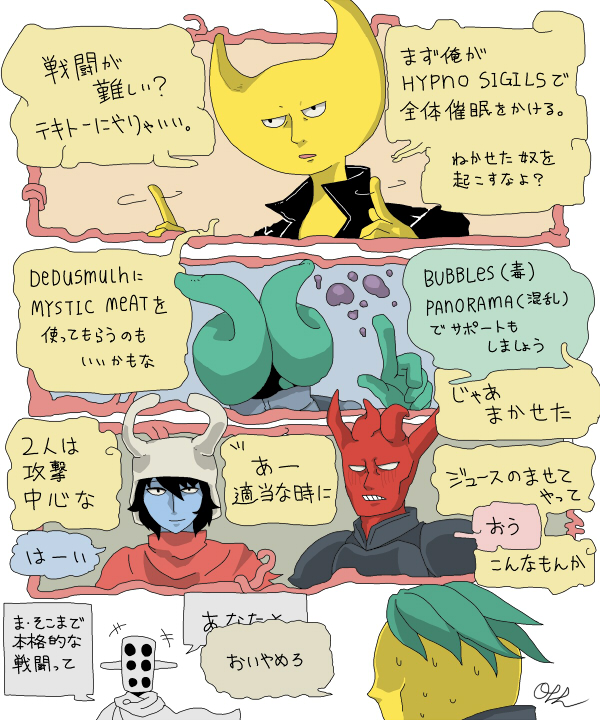 戦闘が
難しい?
テキトーにやりゃいい。
まず俺が
HYPNO SIGILSで
全体催眠をかける。
ねかせた奴を
起こすなよ?
DeDusmuLhに
MYSTIC MeATを
使ってもらうのも
いいかもな
BUBBLeS(毒)
PANORAMA(混乱)
でサポートも
しましょう
じゃあ
まかせた
2人は
攻撃
中心な
はーい
あー
適当な時に
ジュースのませて
やって
おう
こんなもんか
ま・そこまで
本格的な
戦闘って
あなたと
おいやめろ